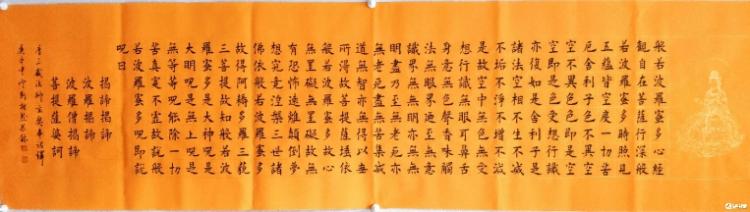 般若波羅蜜多心經
觀自在菩薩行深般
若波羅蜜多時照見
五蘊皆空度一切苦
厄舍利子色不異空
空不異色色即是空
空即是色受想行識
亦復如是舍利子是
諸法空相不生不滅
不垢不淨不增不減
是故空中無色無受
想行識無眼耳鼻舌
身意無色聲香味觸
法無眼界乃至無意
識界無無明亦無無
明盡乃至無老死亦
無老死盡無苦集滅
道無智亦無得以無
所得故菩提薩埵依
般若波羅蜜多故心
無罣礙無罣礙故無
有恐怖遠離顛倒夢
想究竟涅槃三世諸
佛依般若波羅蜜多
故得阿耨多羅三藐
三菩提故知般若波
羅蜜多是大神呪是
大明呪是無上呪是
無等等呪能除一切
苦真實不虛故說般
若波羅蜜多呪即說
呪曰
揭諦揭諦
波羅揭諦
波羅僧揭諦
菩提薩婆訶
唐三藏法師玄奘奉詔譯